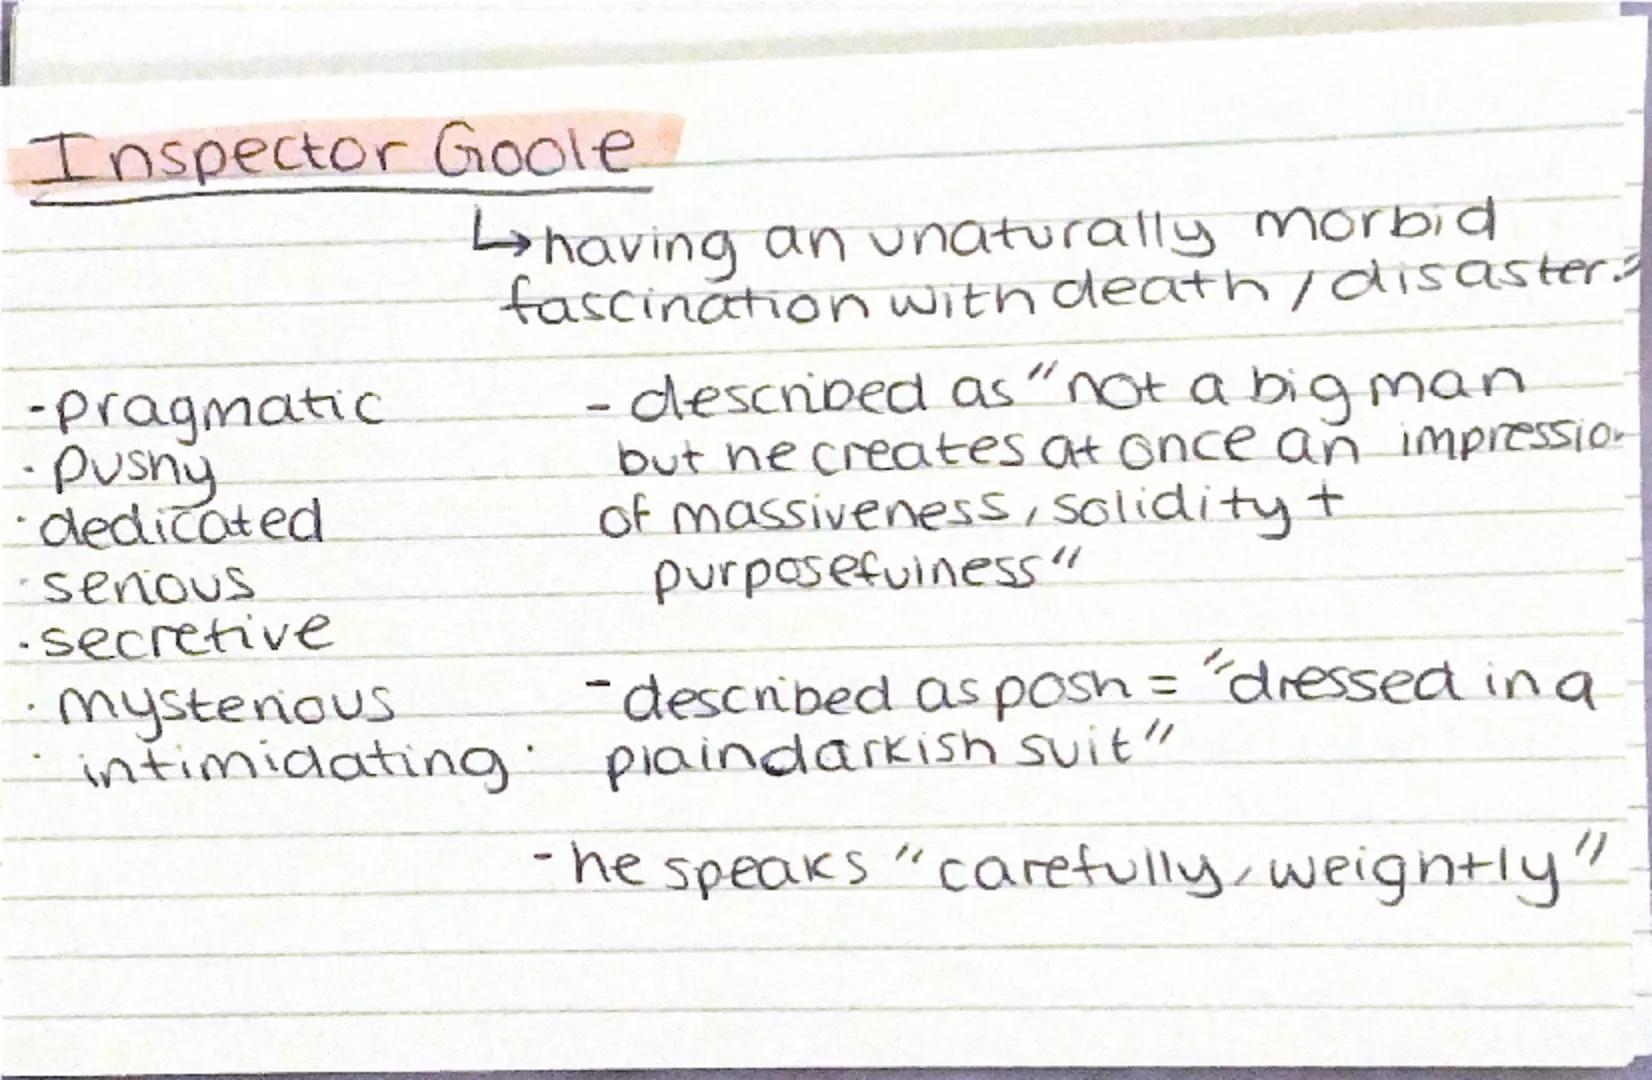 Inspector Goole
↳ having an unaturally morbid
fascination with death / disaster."
- pragmatic
· pushy
· dedicated
· serious
· secretive
· mysterious
· intimidating ·
- described as "not a big man
but he creates at once an impressio
of massiveness, solidity +
purposefulness"
- described as posh = "dressed in a
plain darkish suit"
- he speaks "carefully, weightly"